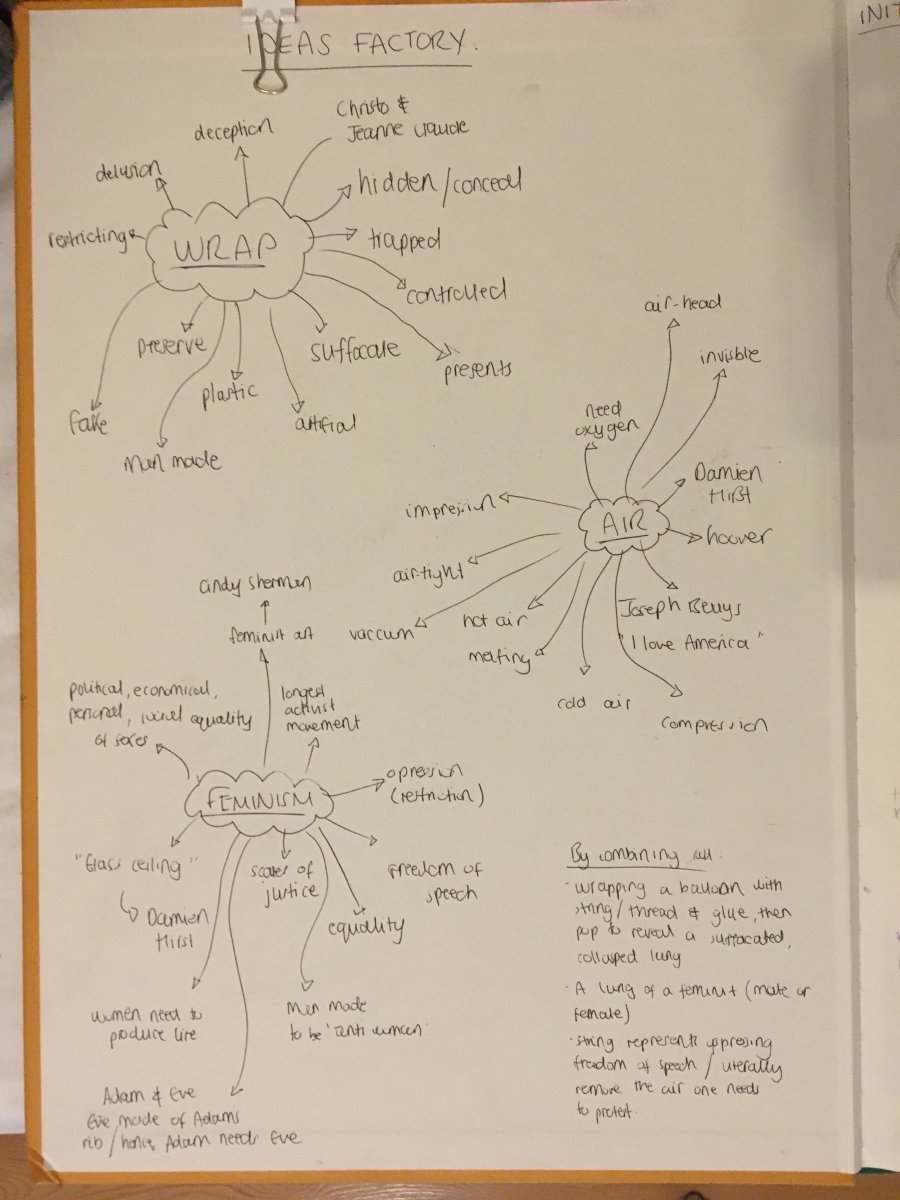 IDEAS FACTORY.
INIT
Christo &
Jeanne Claude
deception
delusion
hidden/conceal
restricting
WRAP
trapped
controlled
preserve
suffocate
presents
plastic
fake
artifial
Man made
air-head
invisble
need
oxygen
Damien
Hirst
impression
AIR
hoover
air-tight
hot air
Joseph Beuys
"I love America"
vaccum
melting
cold air
compression
andy shermen
feminist art
political, economical,
personal, social equality
of sexes
longest
activist
movement
FEMINISM
opression
(restriction)
"Glass ceiling"
Damien
Hirst
scales of
justice
Freedom of
speech
equality
women need to
produce life
Men made
to be 'anti women'
Adam & Eve
Eve made of Adams
rib/hence Adam needs Eve
By combining all.
· wrapping a balloon with
string/thread & glue, then
pop to reveal a suffacated,
collapsed lung
· A lung of a feminist (male or
female)
· string represents oppresing
freedom of speech / literally
remove the air one needs
to protest.